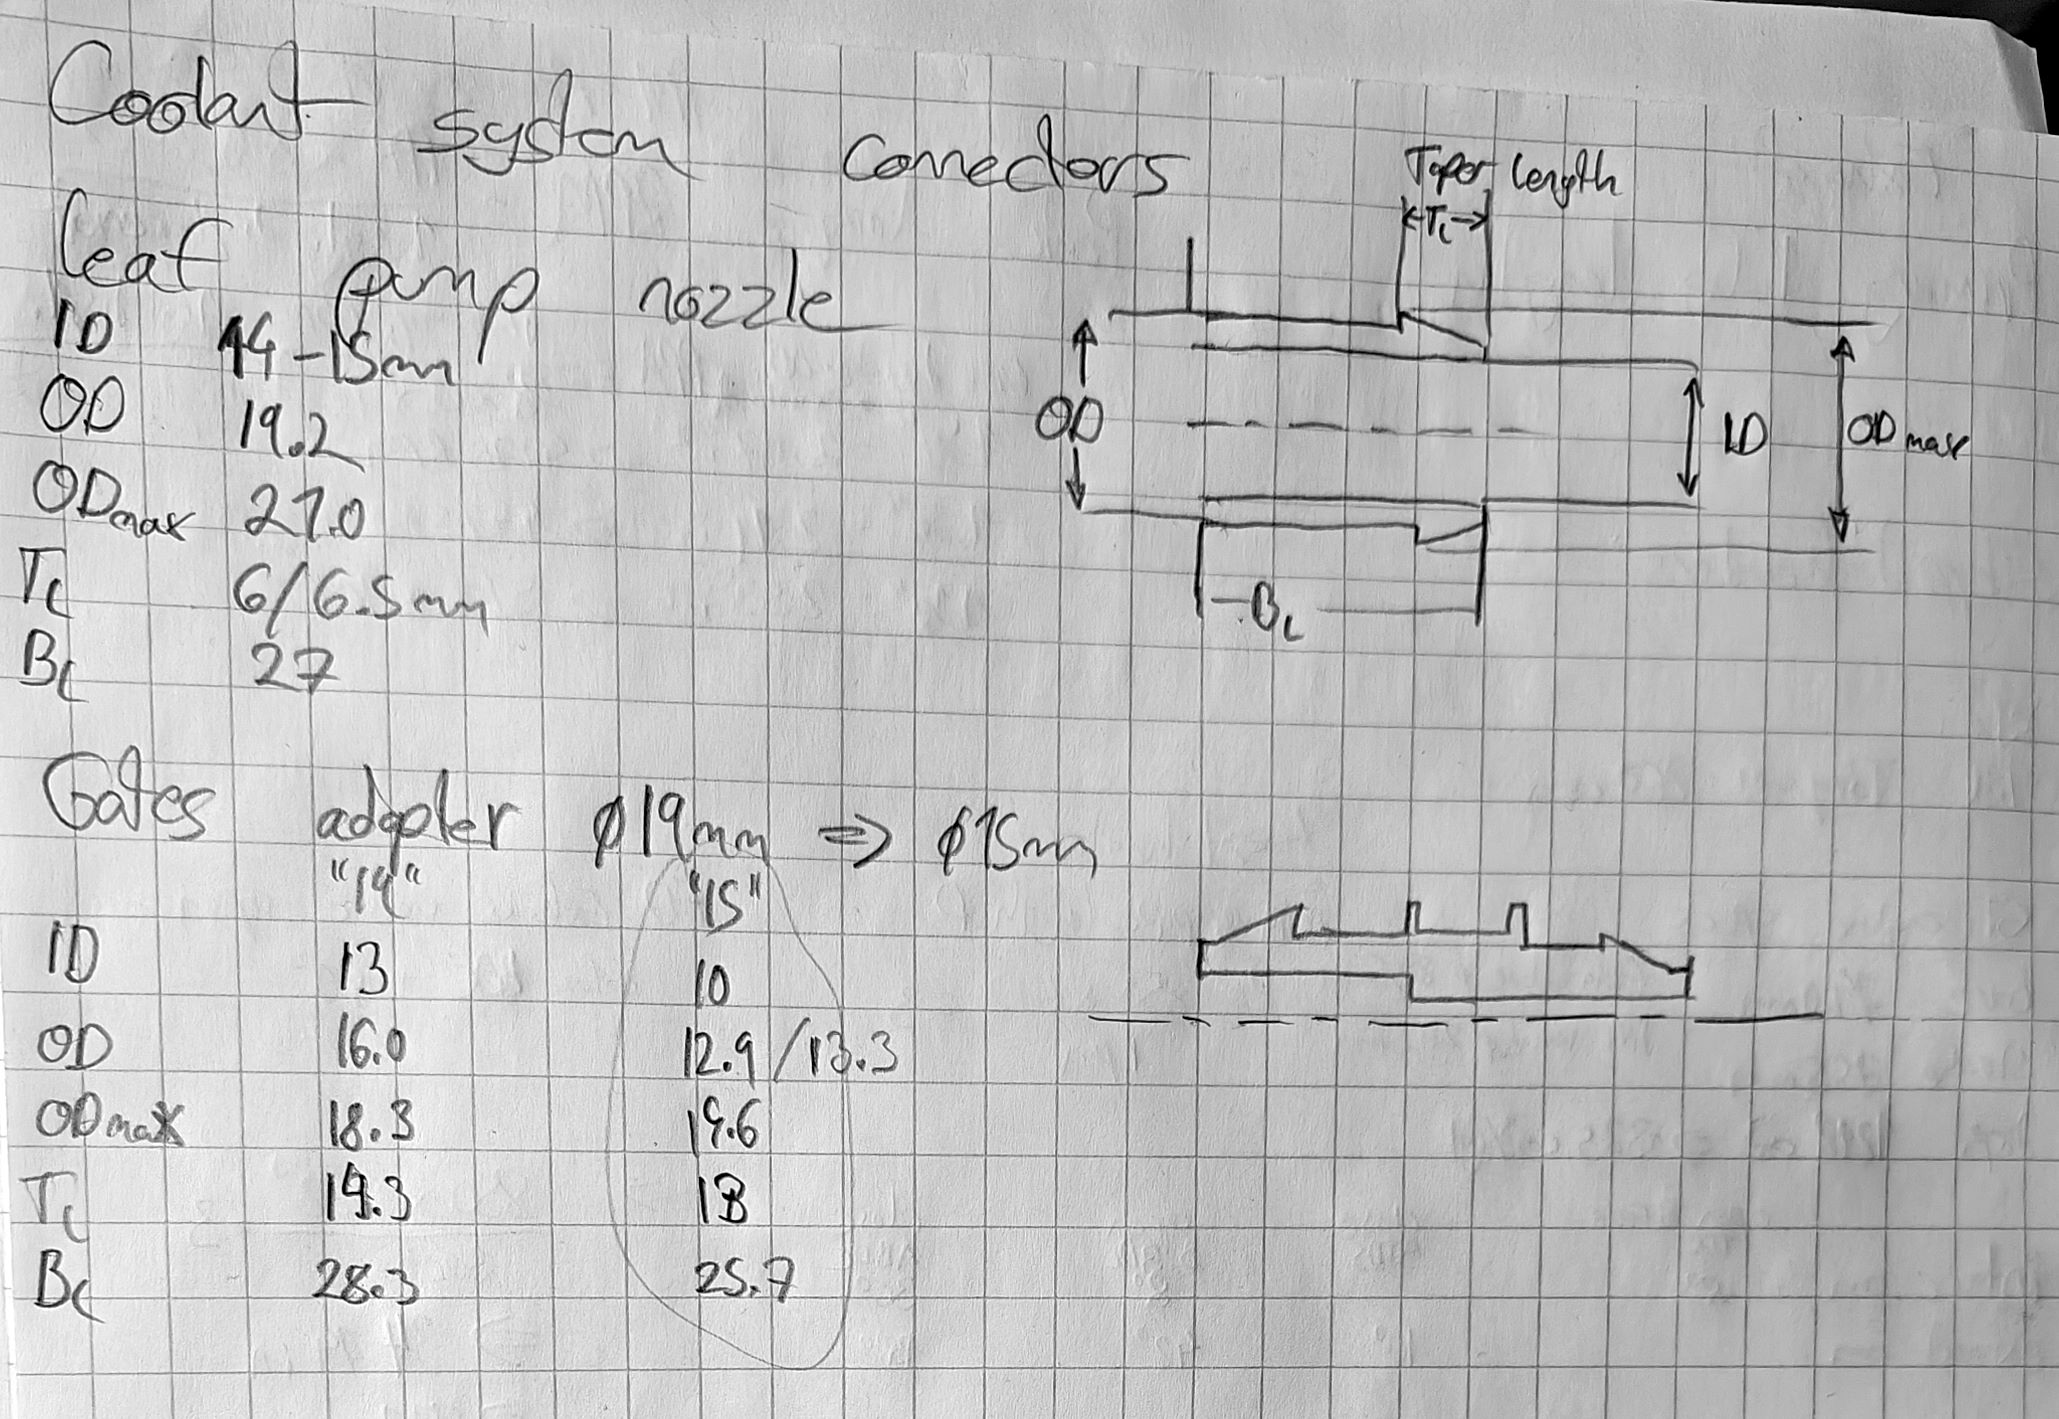 Coolant system connectors
Leaf pump nozzle
ID 14-15mm
OD 19.2
ODmax 21.0
TL 6/6.5mm
BL 27
Taper length
TL
OD
ID
ODmax
BL
Gates adapter ø19mm => ø15mm
"19" "15"
ID 13 10
OD 16.0 12.9/13.3
ODmax 18.3
TL 13
BL 28.3 25.7